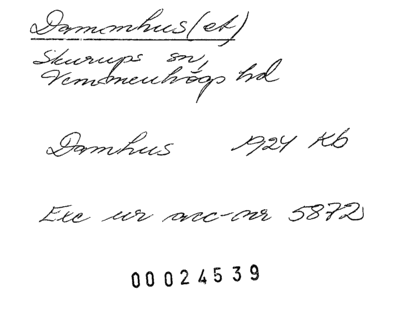 Dammhus(et)
Skurups sn,
Vemmenhögs hd
Damhus 1924 Kb
Exc ur acc-nr 5872
00024539